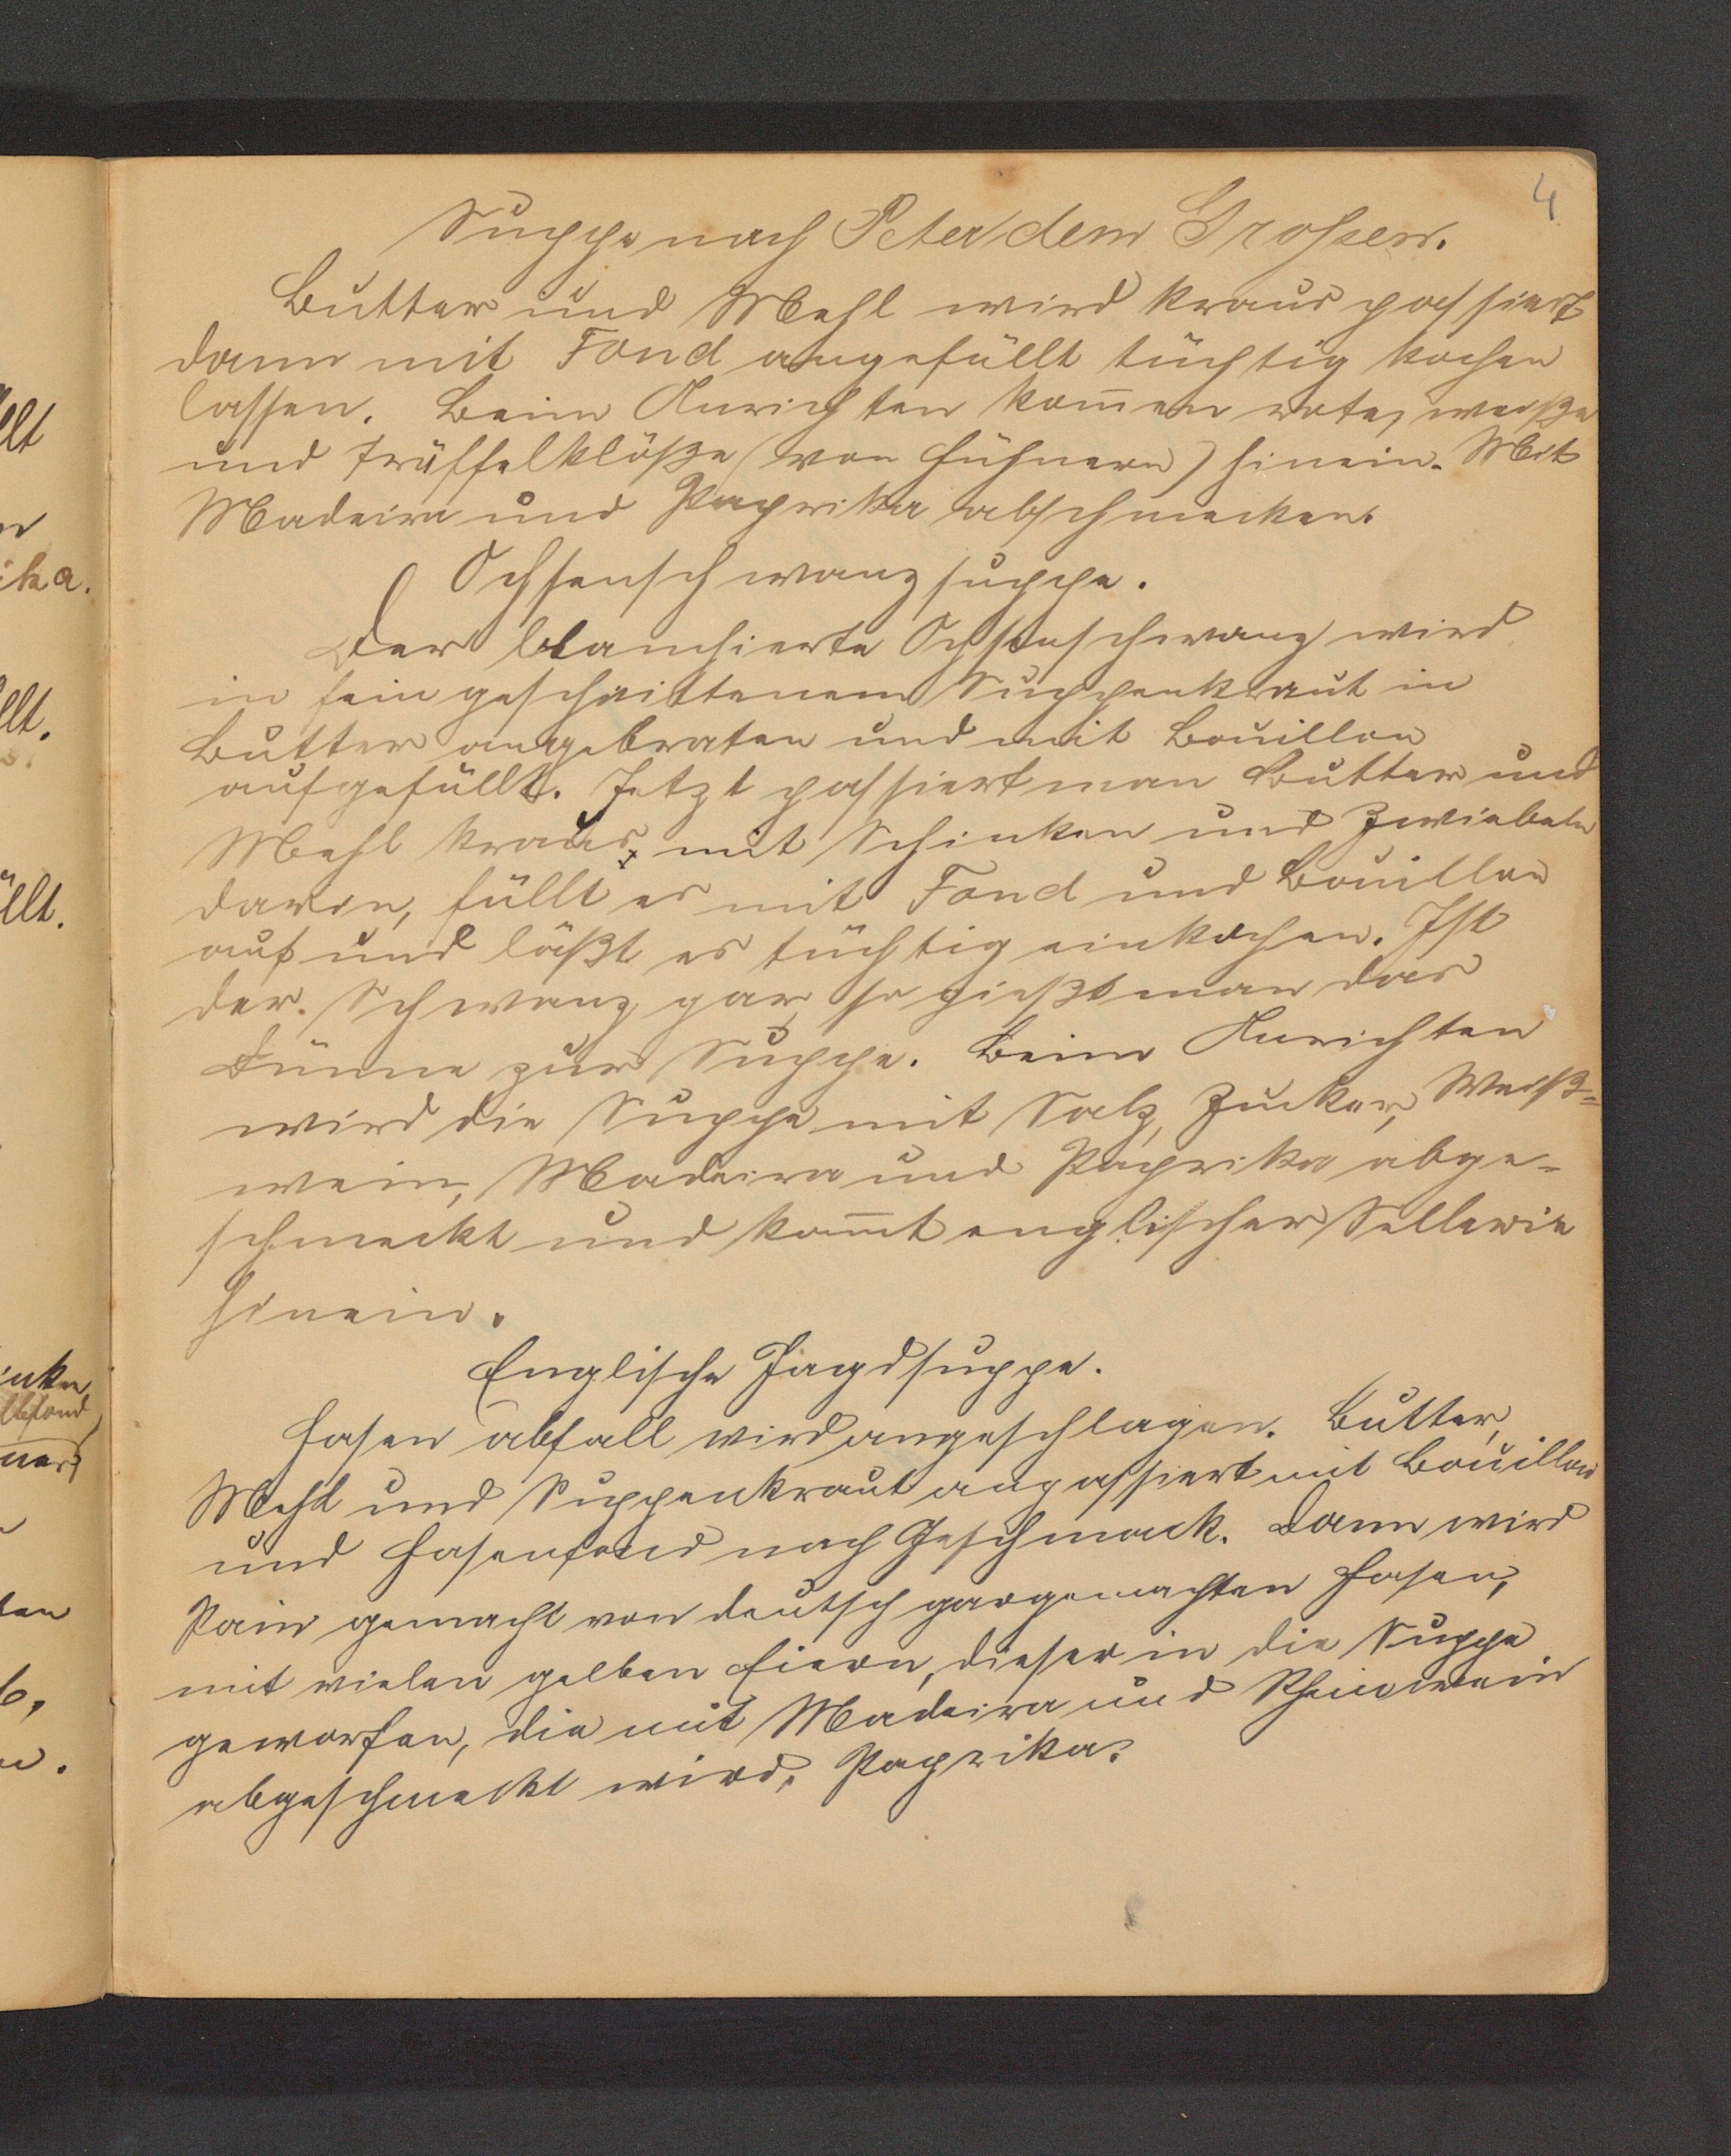 4
Suppe nach Peter dem Grossen.
Butter und Mehl wird kraus passiert
dann mit Fond angefüllt tüchtig kochen
lassen. Beim Anrichten kom̅en rote, weiße
und Trüffelklöße (von Hühnern) hinein. Mit
Madeira und Paprika abschmecken.
Ochsenschwanzsuppe.
Der blanchierte Ochsenschwanz wird
in fein geschnittenem Suppenkraut in
Butter angebraten und mit Bouillon
aufgefüllt. Jetzt passiert man Butter und
Mehl kraus, mit Schinken und Zwiebeln
darin, füllt es mit Fond und Bouillon
auf und läßt es tüchtig einkochen. Ist
der Schwanz gar so gießt man das
Dünne zur Suppe. Beim Anrichten
wird die Suppe mit Salz, Zucker, Weiß=
wein, Madeira und Paprika abge-
schmeckt und kom̅t englischer Sellerie
hinein.
Englische Jagdsuppe.
Hasen abfall wird angeschlagen. Butter,
Mehl und Suppenkraut anpassiert mit Bouillon
und Hasenfond nach Geschmack. Dann wird
Pain gemacht von deutsch gargemachten Hasen,
mit vielen gelben Eiern, dieser in die Suppe
geworfen, die mit Madeira und Rheinwein
abgeschmeckt wird, Paprika.